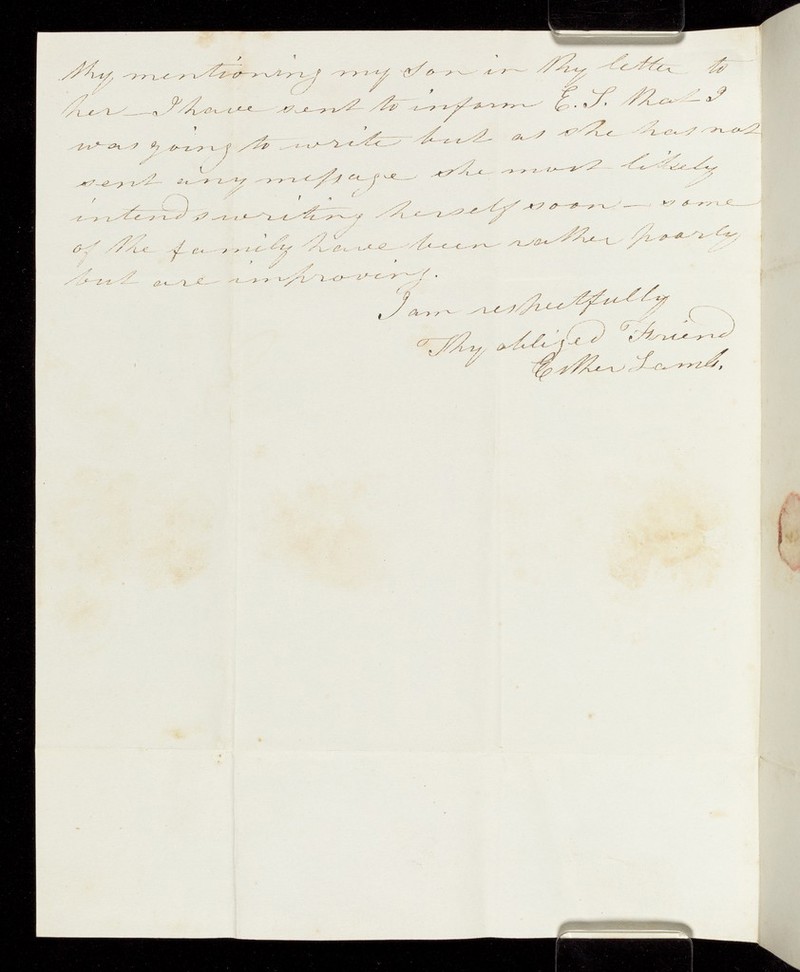 thy mentioning my son in thy letter to
her — I have sent to inform E. S. that I
was going to write but as she has not
sent any message she most likely
intends writing herself soon — some
of the family have been rather poorly
but are improving.
I am respectfully
Thy obliged Friend
Esther Lamb.